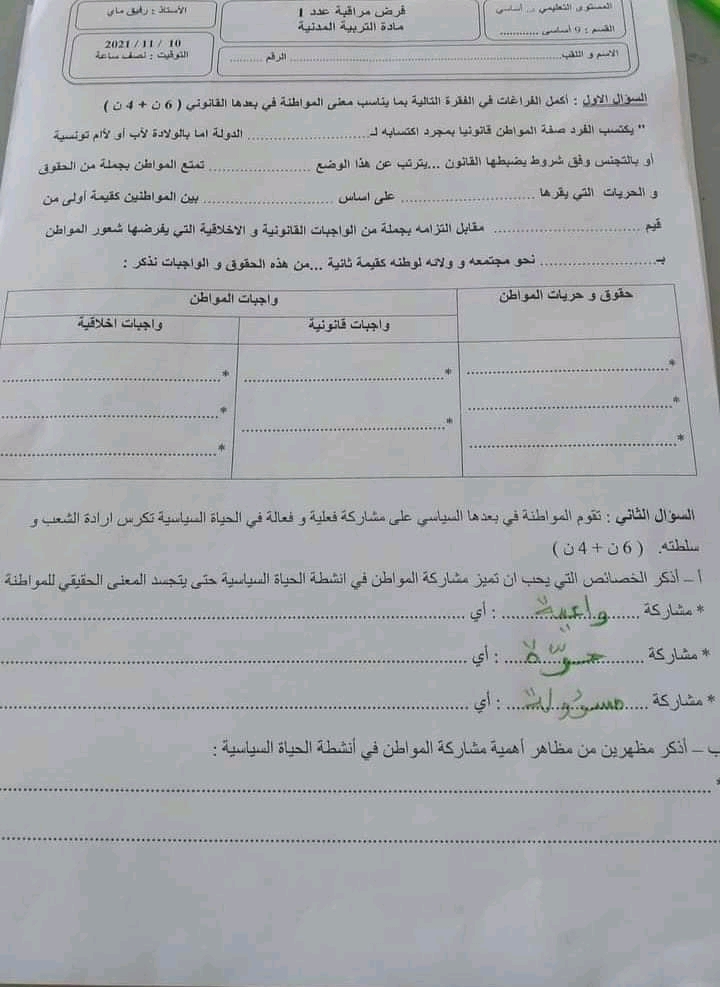 المستوى التعليمي : أساسي
القسم : 9 أساسي ............
فرض مراقبة عدد 1
مادة التربية المدنية
الأستاذ : رفيق ماي
10 / 11 / 2021
التوقيت : نصف ساعة
الاسم و اللقب.......................................................الرقم ..........
السؤال الاول : أكمل الفراغات في الفقرة التالية بما يناسب معنى المواطنة في بعدها القانوني ( 6 ن + 4 ن )
" يكتسب الفرد صفة المواطن قانونيا بمجرد اكتسابه لـ........................ الدولة اما بالولادة لأب أو لأم تونسية
أو بالتجنس وفق شروط يضبطها القانون ...يترتب عن هذا الوضع .................... تمتع المواطن بجملة من الحقوق
و الحريات التي يقرها .......................... على اساس .......................... بين المواطنين كقيمة أولى من
قيم ............................ مقابل التزامه بجملة من الواجبات القانونية و الاخلاقية التي يفرضها شعور المواطن
بـ........................ نحو مجتمعه و ولائه لوطنه كقيمة ثانية ...من هذه الحقوق و الواجبات نذكر :
حقوق و حريات المواطن
واجبات المواطن
واجبات قانونية
واجبات اخلاقية
*........................ *........................ *........................
*........................ *........................ *........................
*........................ *........................
السؤال الثاني : تقوم المواطنة في بعدها السياسي على مشاركة فعلية و فعالة في الحياة السياسية تكرس ارادة الشعب و
سلطته. ( 6 ن + 4 ن )
أ – أذكر الخصائص التي يحب ان تميز مشاركة المواطن في انشطة الحياة السياسية حتى يتجسد المعنى الحقيقي للمواطنة
* مشاركة ......واعية...... : أي ........................................
* مشاركة ......حرّة...... : أي ........................................
* مشاركة ......مسؤولة...... : أي ........................................
ب – أذكر مظهرين من مظاهر أهمية مشاركة المواطن في أنشطة الحياة السياسية :
*........................................................................
........................................................................